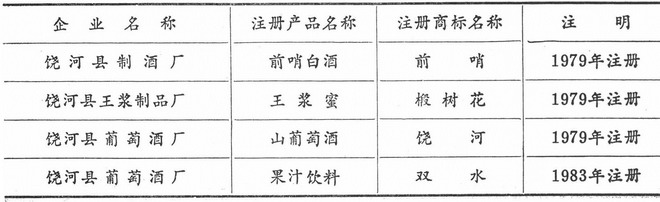 企业名称 注册产品名称 注册商标名称 注明
饶河县制酒厂 前哨白酒 前哨 1979年注册
饶河县王浆制品厂 王浆蜜 椴树花 1979年注册
饶河县葡萄酒厂 山葡萄酒 饶河 1979年注册
饶河县葡萄酒厂 果汁饮料 双水 1983年注册